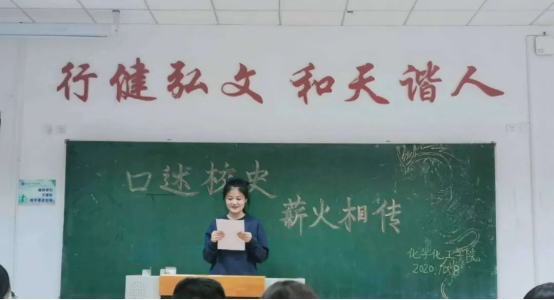 行健弘文 和天谐人
口述校史
薪火相传
化学化工学院
2020.10.8